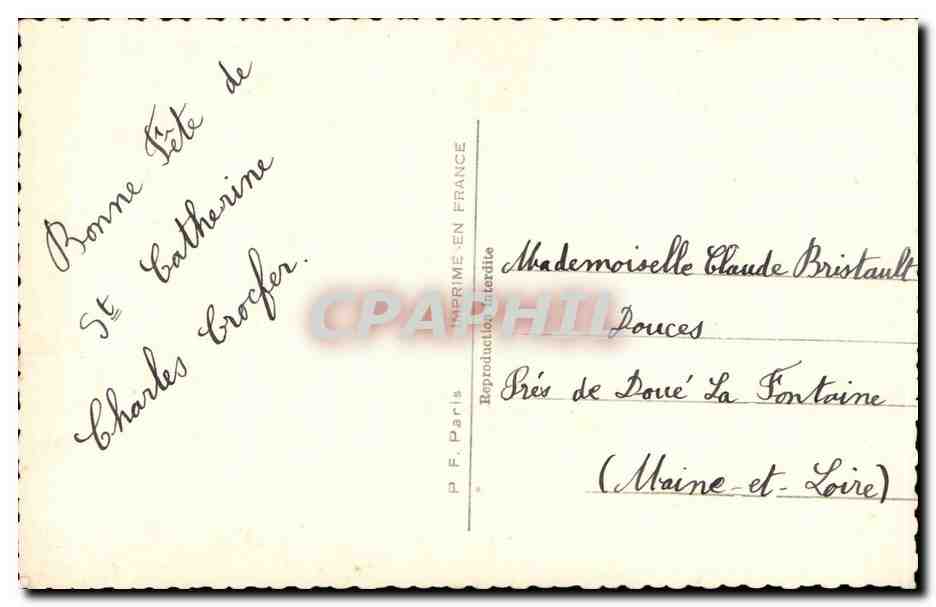 Bonne Fête de
St Catherine
Charles Crocfer.
P. F. Paris IMPRIMÉ EN FRANCE
Reproduction Interdite
CPAPHIL
Mademoiselle Claude Bristault
Douces
Prés de Doué La Fontaine
(Maine-et-Loire)